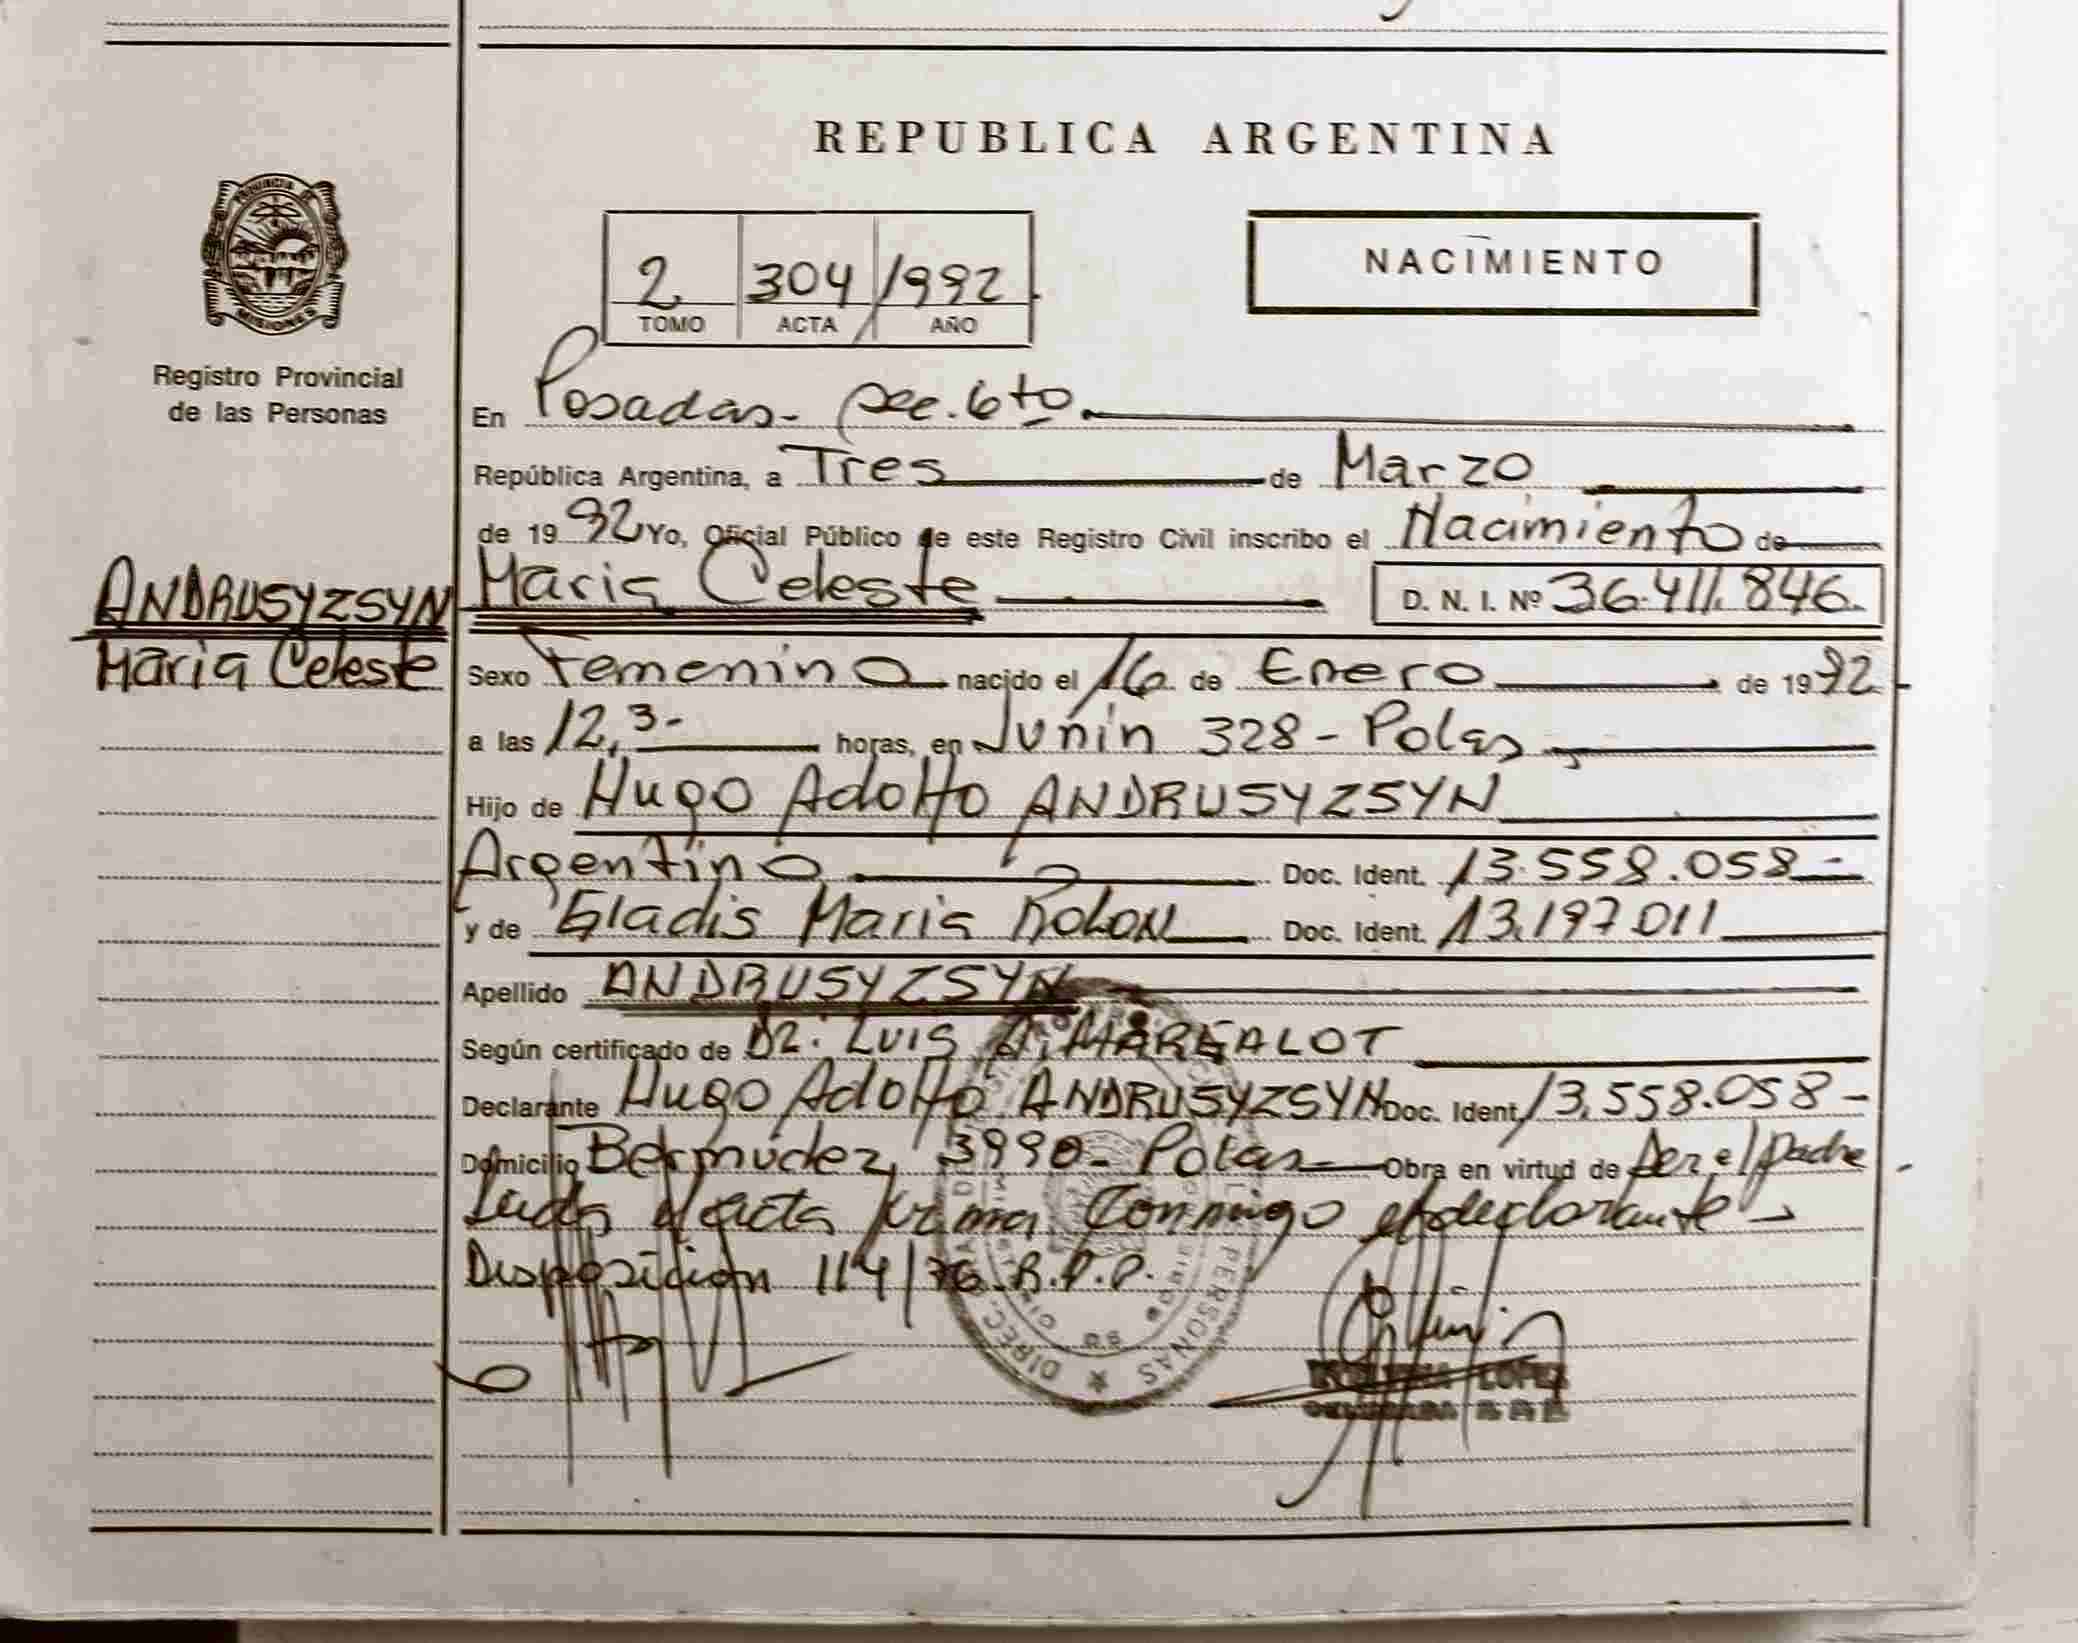 REPUBLICA ARGENTINA
PROVINCIA DE
MISIONES
Registro Provincial
de las Personas
2 304 1992
TOMO ACTA AÑO
NACIMIENTO
En Posadas - sec. 6to
República Argentina, a Tres de Marzo
de 1992 Yo, Oficial Público de este Registro Civil inscribo el Nacimiento de
Maria Celeste D. N. I. Nº 36.411.846.
ANDRUSYZSYN
Maria Celeste
Sexo Femenino nacido el 16 de Enero de 1992
a las 12,3- horas, en Junin 328 - Pdas
Hijo de Hugo Adolfo ANDRUSYZSYN
Argentino Doc. Ident. 13.558.058-
y de Gladis Maria ROLON Doc. Ident. 13.197011
Apellido ANDRUSYZSYN
Según certificado de Dr. LUIS A. MAREALOT
Declarante Hugo Adolfo ANDRUSYZSYN Doc. Ident. 13.558.058-
Domicilio Bermúdez, 3990 - Pdas Obra en virtud de ser el padre
Leída el acta firma conmigo el declarante -
Disposicion 114/76 R.P.P.
DIREC. PERSONAS
LOPEZ